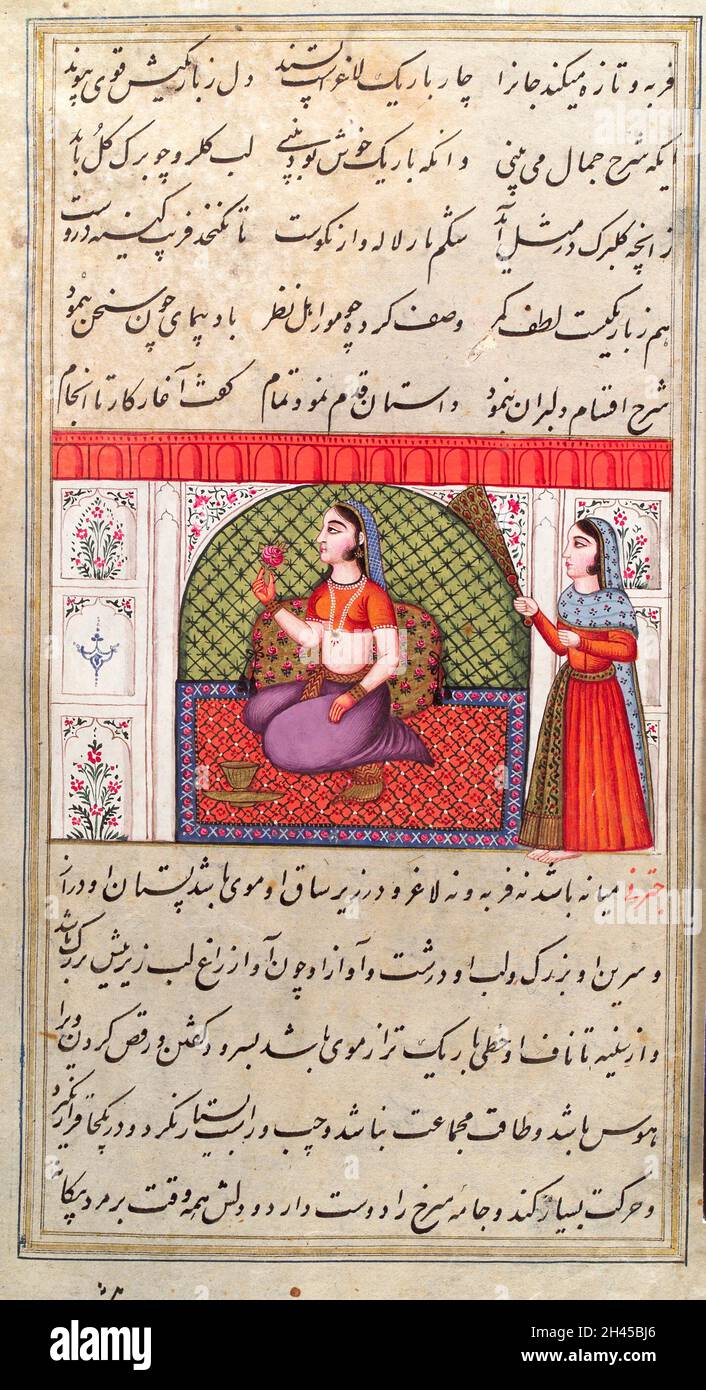 فربه و تازه میکند جانرا چار باریک لاغر پسند دل ز باریکیش قوی پیوند
ایکه شرح جمال می بینی وانکه باریک خوش بود بینی لب کلرو چو برک کل باید
زانچه کلبرک در مثل آید شکم نار لاله وار نکوست تا
هم ز باریکیست لطف کمر وصف کرده چو مور اهل نظر باد پیمای چون سخن پیمود
شرح اقسام دلبران بنمود داستان قدم نمود تمام کفت آغاز کار تا انجام
میانه باشد نه فربه و نه لاغر و در زیر ساق او موی باشد پستان او دراز
و سرین او بزرک و لب او درشت و آواز او چون آواز زاغ لب زیریش بزرک باشد
و از سینه تا ناف او خطی باریک تر از موی باشد بسرود کفتن و رقص کردن ویرا
هوس باشد و طاقت مجامعت نباشد و چپ و راست بسیار نکرد و در یکجا قرار نکیرد
و حرکت بسیار کند و جامه سرخ را دوست دارد و دلش همه وقت بر مرد بیکانه
alamy
alamy
Image ID: 2H45BJ6
www.alamy.com